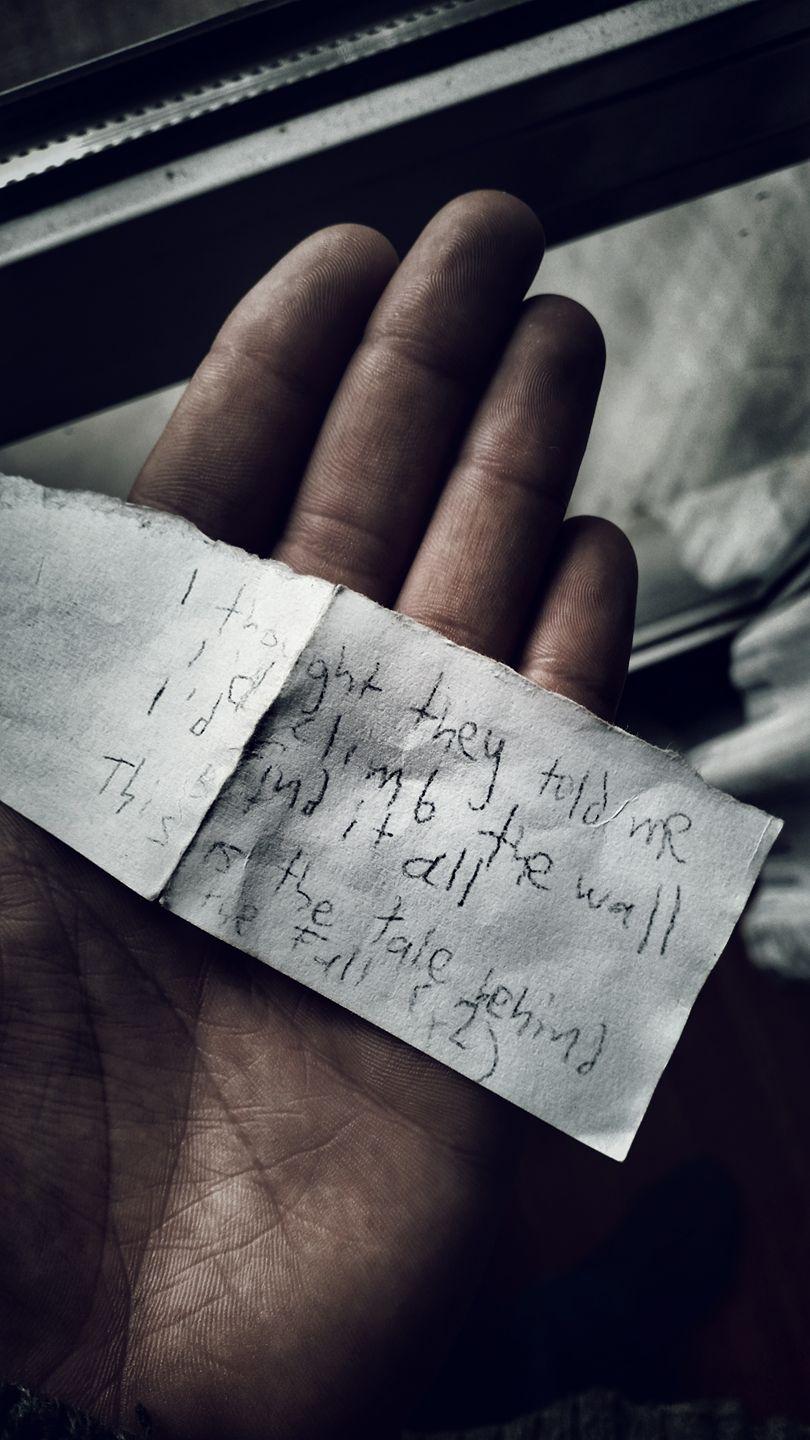 I thought they told me
I'd climb the wall
I'd find it all
This is the tale behind
the Fall (x2)